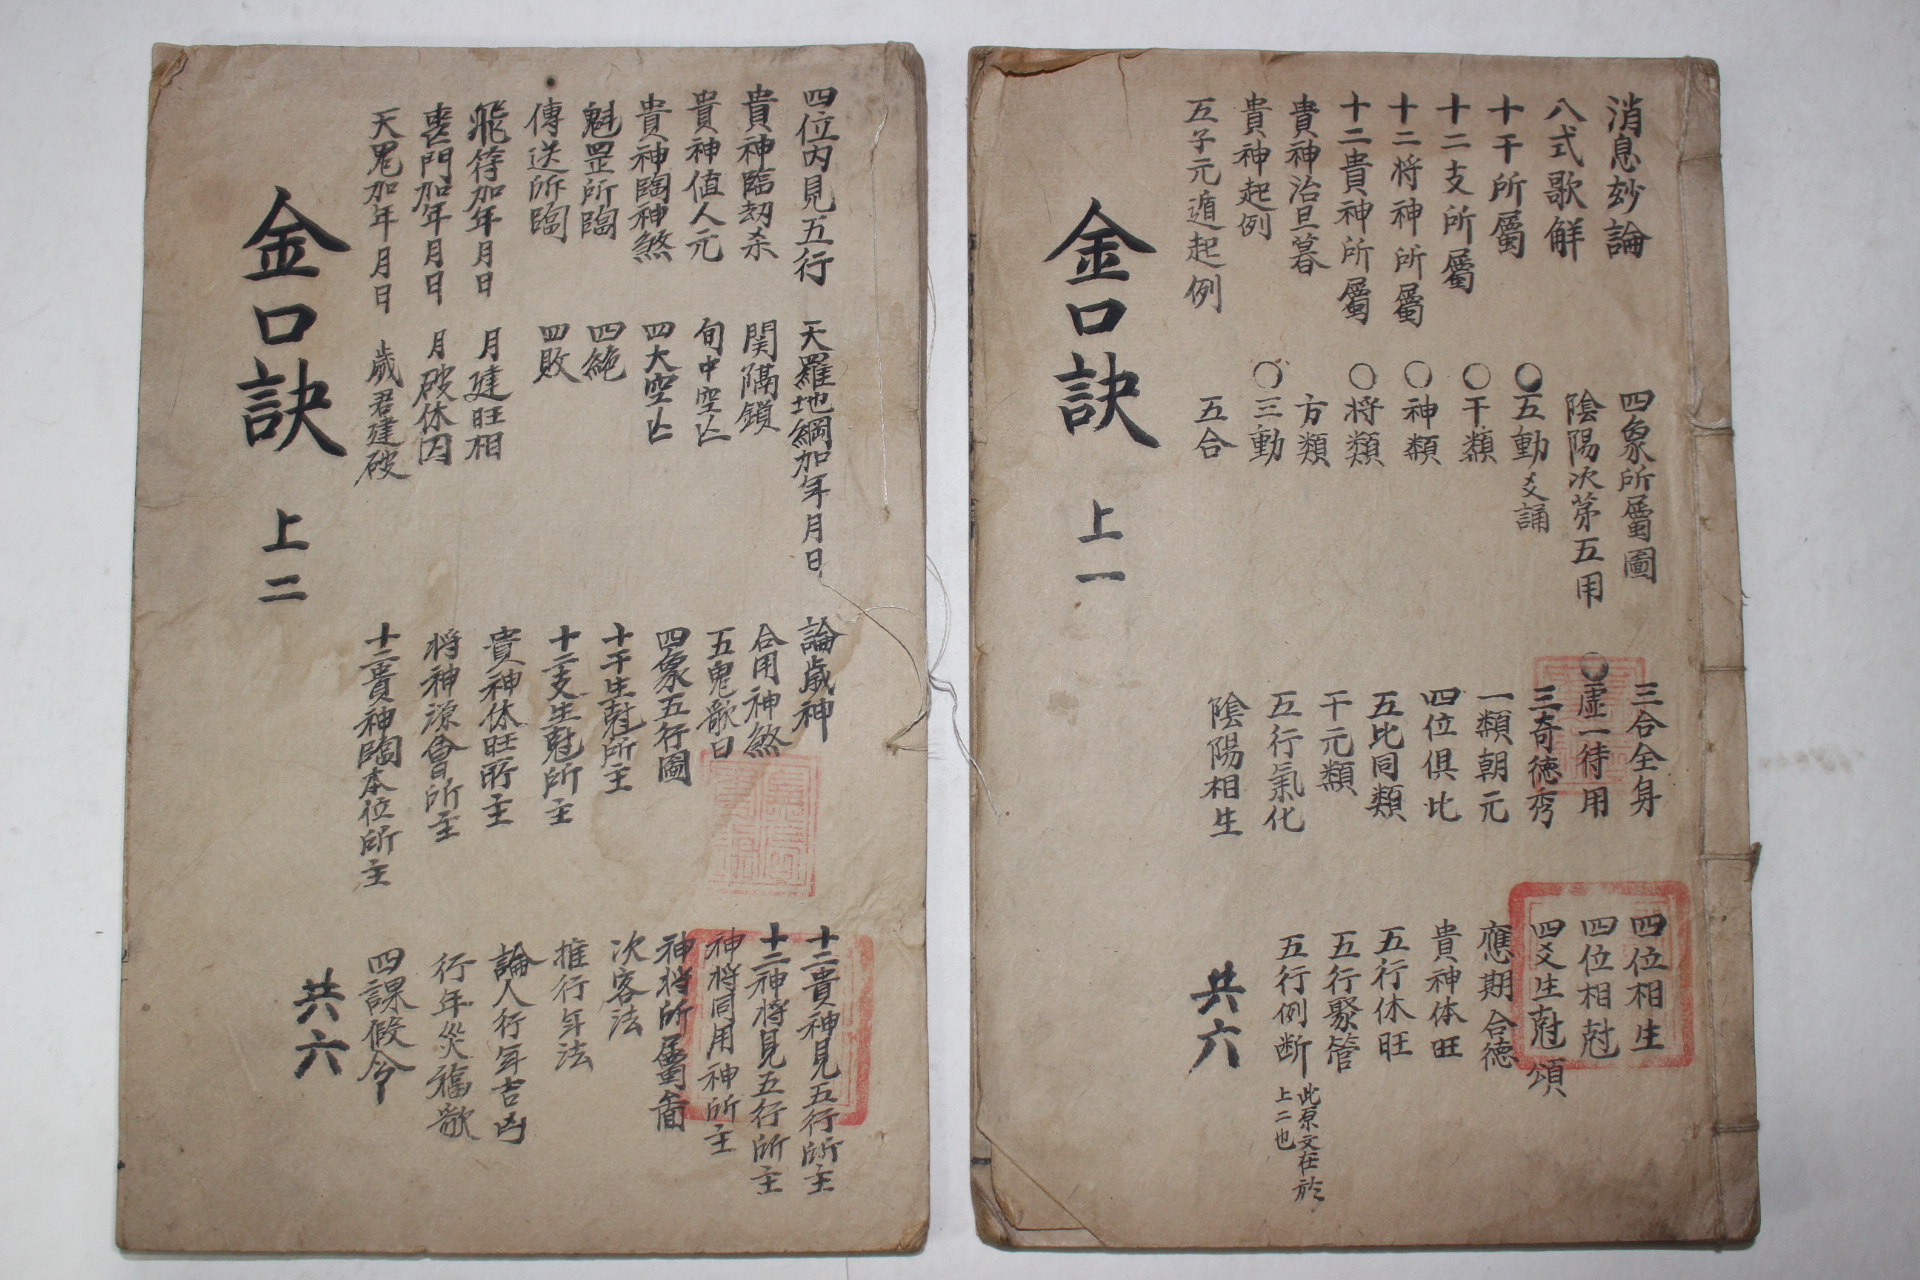 消息妙論
八式歌觧
十干所屬
十二支所屬
十二将神所屬
十二貴神所屬
貴神治旦暮
貴神起例
五子元遁起例
四象所屬圖
陰陽次苐五用
○五動爻誦
○干類
○神類
○将類
方類
○三動
五合
三合全身
○虛一待用
三奇德秀
一類朝元
四位俱比
五比同類
干元類
五行氣化
陰陽相生
四位相生
四位相尅
四爻生尅頌
應期合德
貴神休旺
五行休旺
五行聚管
五行例断
此原文在於
上二也
金口訣 上一
共六
四位内見五行
貴神臨刼杀
貴神值人元
貴神臨神煞
魁罡所臨
傳送所臨
飛符加年月日
喪門加年月日
天鬼加年月日
天羅地網加年月日
関隔鎖
旬中空亡
四大空亡
四絶
四敗
月建旺相
月破休囚
歲君建破
論歲神
合用神煞
五鬼歌曰
四象五行圖
十干生尅所主
十二支生尅所主
貴神休旺所主
将神源會所主
十二貴神臨本位所主
十二貴神見五行所主
十二神将見五行所主
神将同用神所主
神将所屬畨
次客法
推行年法
論人行年吉凶
行年災福歌
四課假令
金口訣 上二
共六